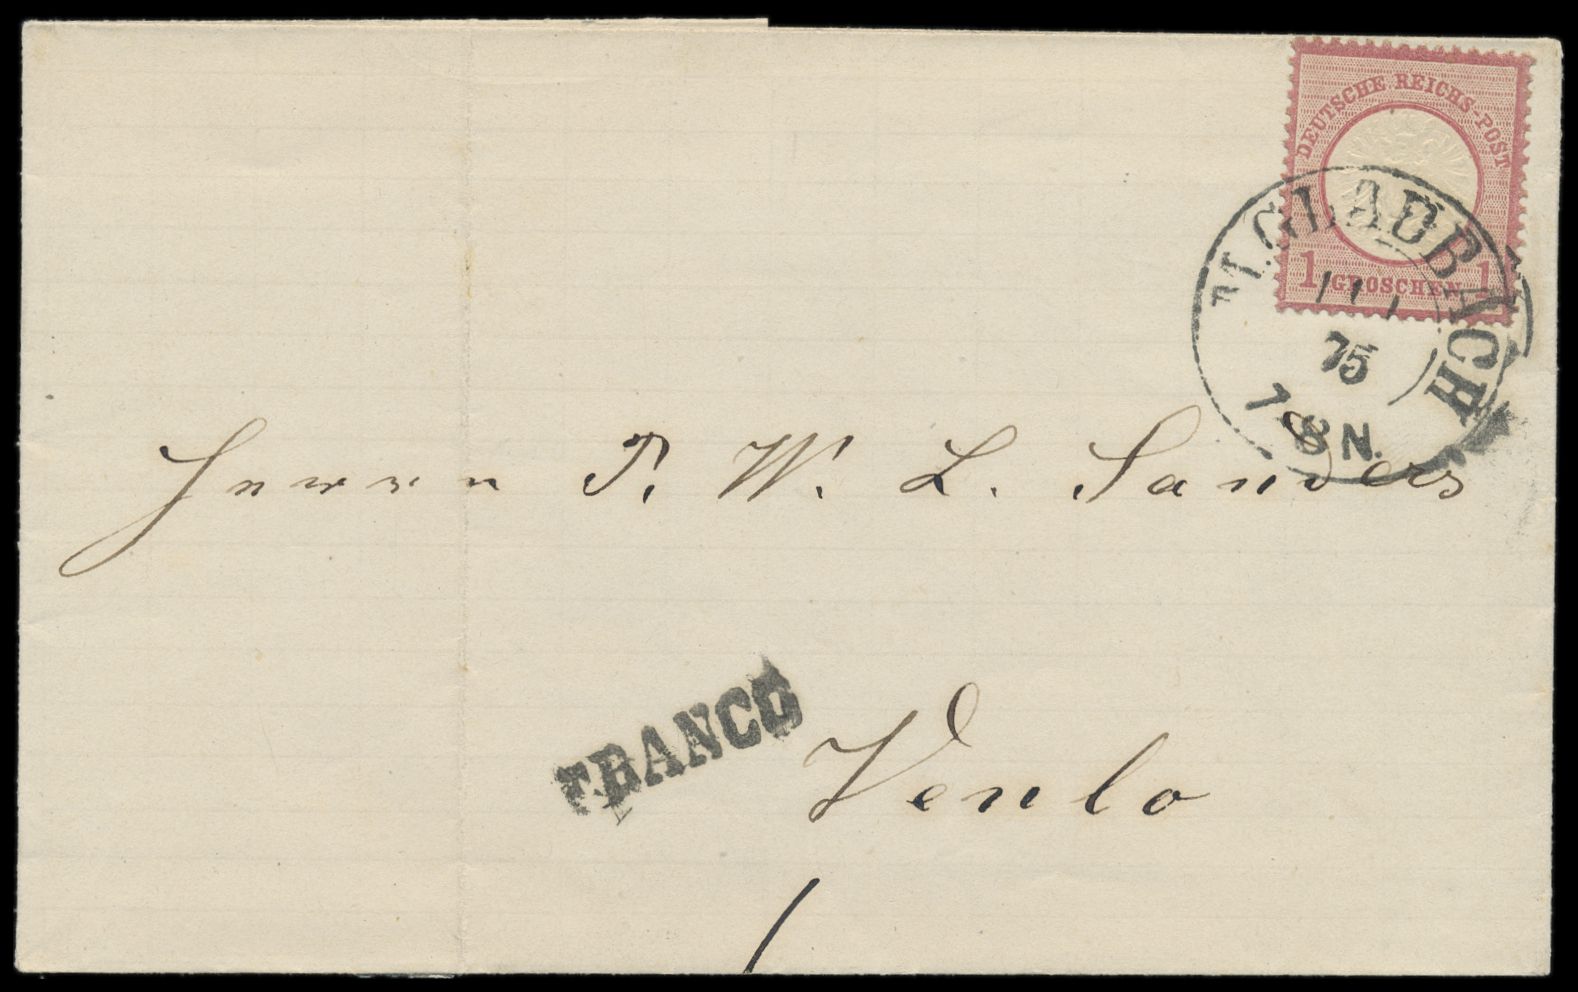 DEUTSCHE REICHS-POST
1 GROSCHEN 1
M.GLADBACH
75
7-8 N.
Herren P. W. L. Sanders
FRANCO
Venlo